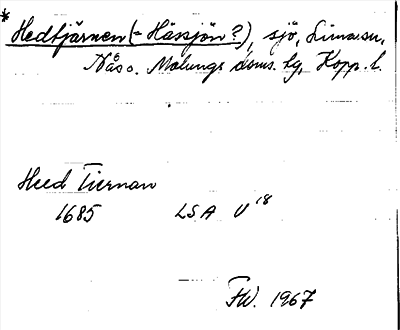 * Hedtjärnen (= Hässjön?), sjö, Lima sn,
Nås o. Malungs doms. hg, Kopp. l.
Heed Tiernan
1685 LSA U 18
FW. 1967